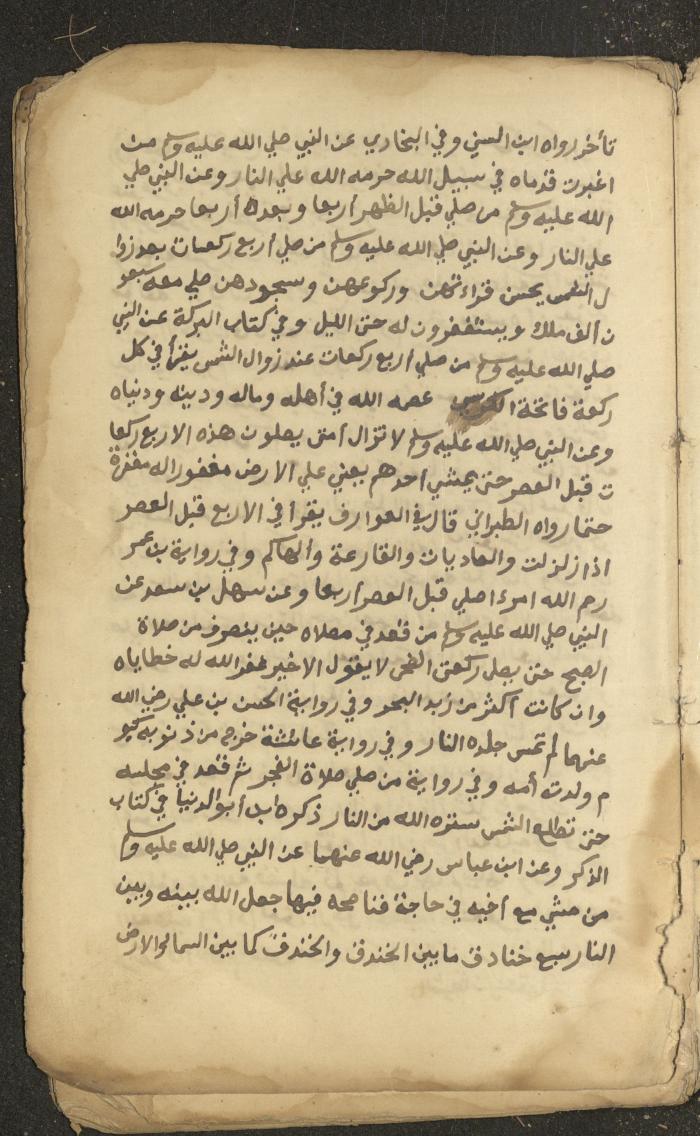 تأخر رواه ابن السني وفي البخاري عن النبي صلي الله عليه وسلم من
اغبرت قدماه في سبيل الله حرمه الله علي النار وعن النبي صلي
الله عليه وسلم من صلي قبل الظهر أربعا وبعدها أربعا حرمه الله
علي النار وعن النبي صلي الله عليه وسلم من صلي أربع ركعات بعد زوا
ل الشمس يحسن قراءتهن وركوعهن وسجودهن صلي معه سبعو
ن ألف ملك ويستغفرون له حتى الليل وفي كتاب البركة عن النبي
صلي الله عليه وسلم من صلي أربع ركعات عند زوال الشمس يقرأ في كل
ركعة فاتحة الكرسي عصمه الله في أهله وماله ودينه ودنياه
وعن النبي صلي الله عليه وسلم لا تزال أمتي يصلون هذه الاربع ركعا
ت قبل العصر حتى يمشي أحدهم يعني علي الارض مغفورا له مغفرة
حتما رواه الطبراني قال في العوارف يقرأ في الاربع قبل العصر
اذا زلزلت والعاديات والقارعة وألهاكم وفي رواية بن عمر
رحم الله امرءا صلي قبل العصر أربعا وعن سهل بن سعد عن
النبي صلي الله عليه وسلم من قعد في مصلاه حين ينصرف من صلاة
الصبح حتى يصل ركعتي الضحى لا يقول الا خير غفر الله له خطاياه
وان كانت أكثر من زبد البحر وفي رواية الحسن بن علي رضي الله
عنهما لم تمس جلده النار وفي رواية عائشة خرج من ذنوبه كيو
م ولدته أمه وفي رواية من صلي صلاة الفجر ثم قعد في مجلسه
حتى تطلع الشمس ستره الله من النار ذكره ابن أبو الدنيا في كتاب
الذكر وعن ابن عباس رضي الله عنهما عن النبي صلي الله عليه وسلم
من مشي مع أخيه في حاجة فناصحه فيها جعل الله بينه وبين
النار سبع خنادق ما بين الخندق والخندق كما بين السما والارض